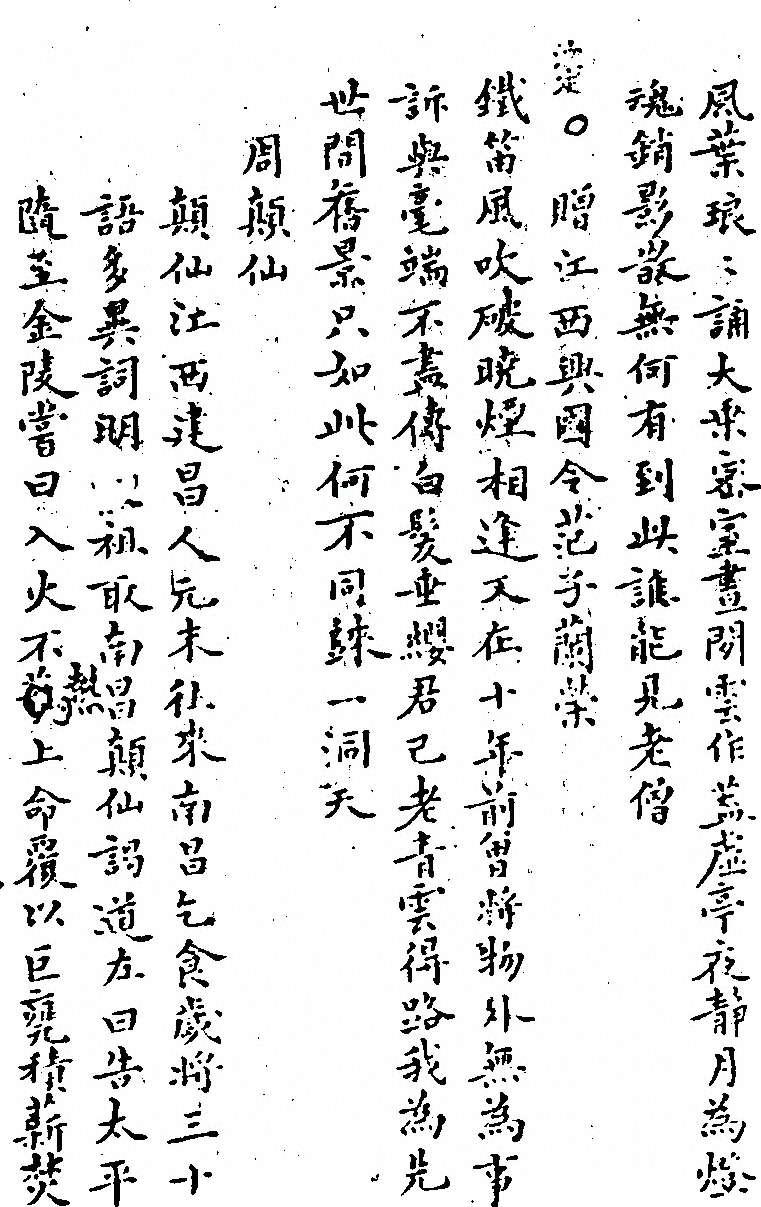 風葉琅〻誦大乘密室晝閒雲作蓋虛亭夜靜月為燈
魂銷影散無何有到此誰能見老僧
贈江西興國令范子蘭榮
鐵笛風吹破曉煙相逢又在十年前曾將物外無為事
訴與毫端不盡傳白髮垂纓君已老青雲得路我為先
世間舊景只如此何不同歸一洞天
周顛仙
顛仙江西建昌人元末往來南昌乞食歲將三十
語多異詞明以祖取南昌顛仙謁道左曰告太平
隨至金陵嘗曰入火不熱上命覆以巨甕積薪焚